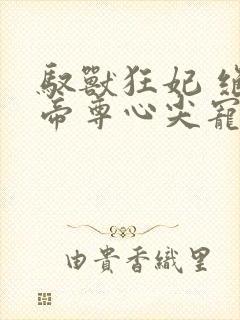 馭獸狂妃
帝尊心尖寵
由貴香織里